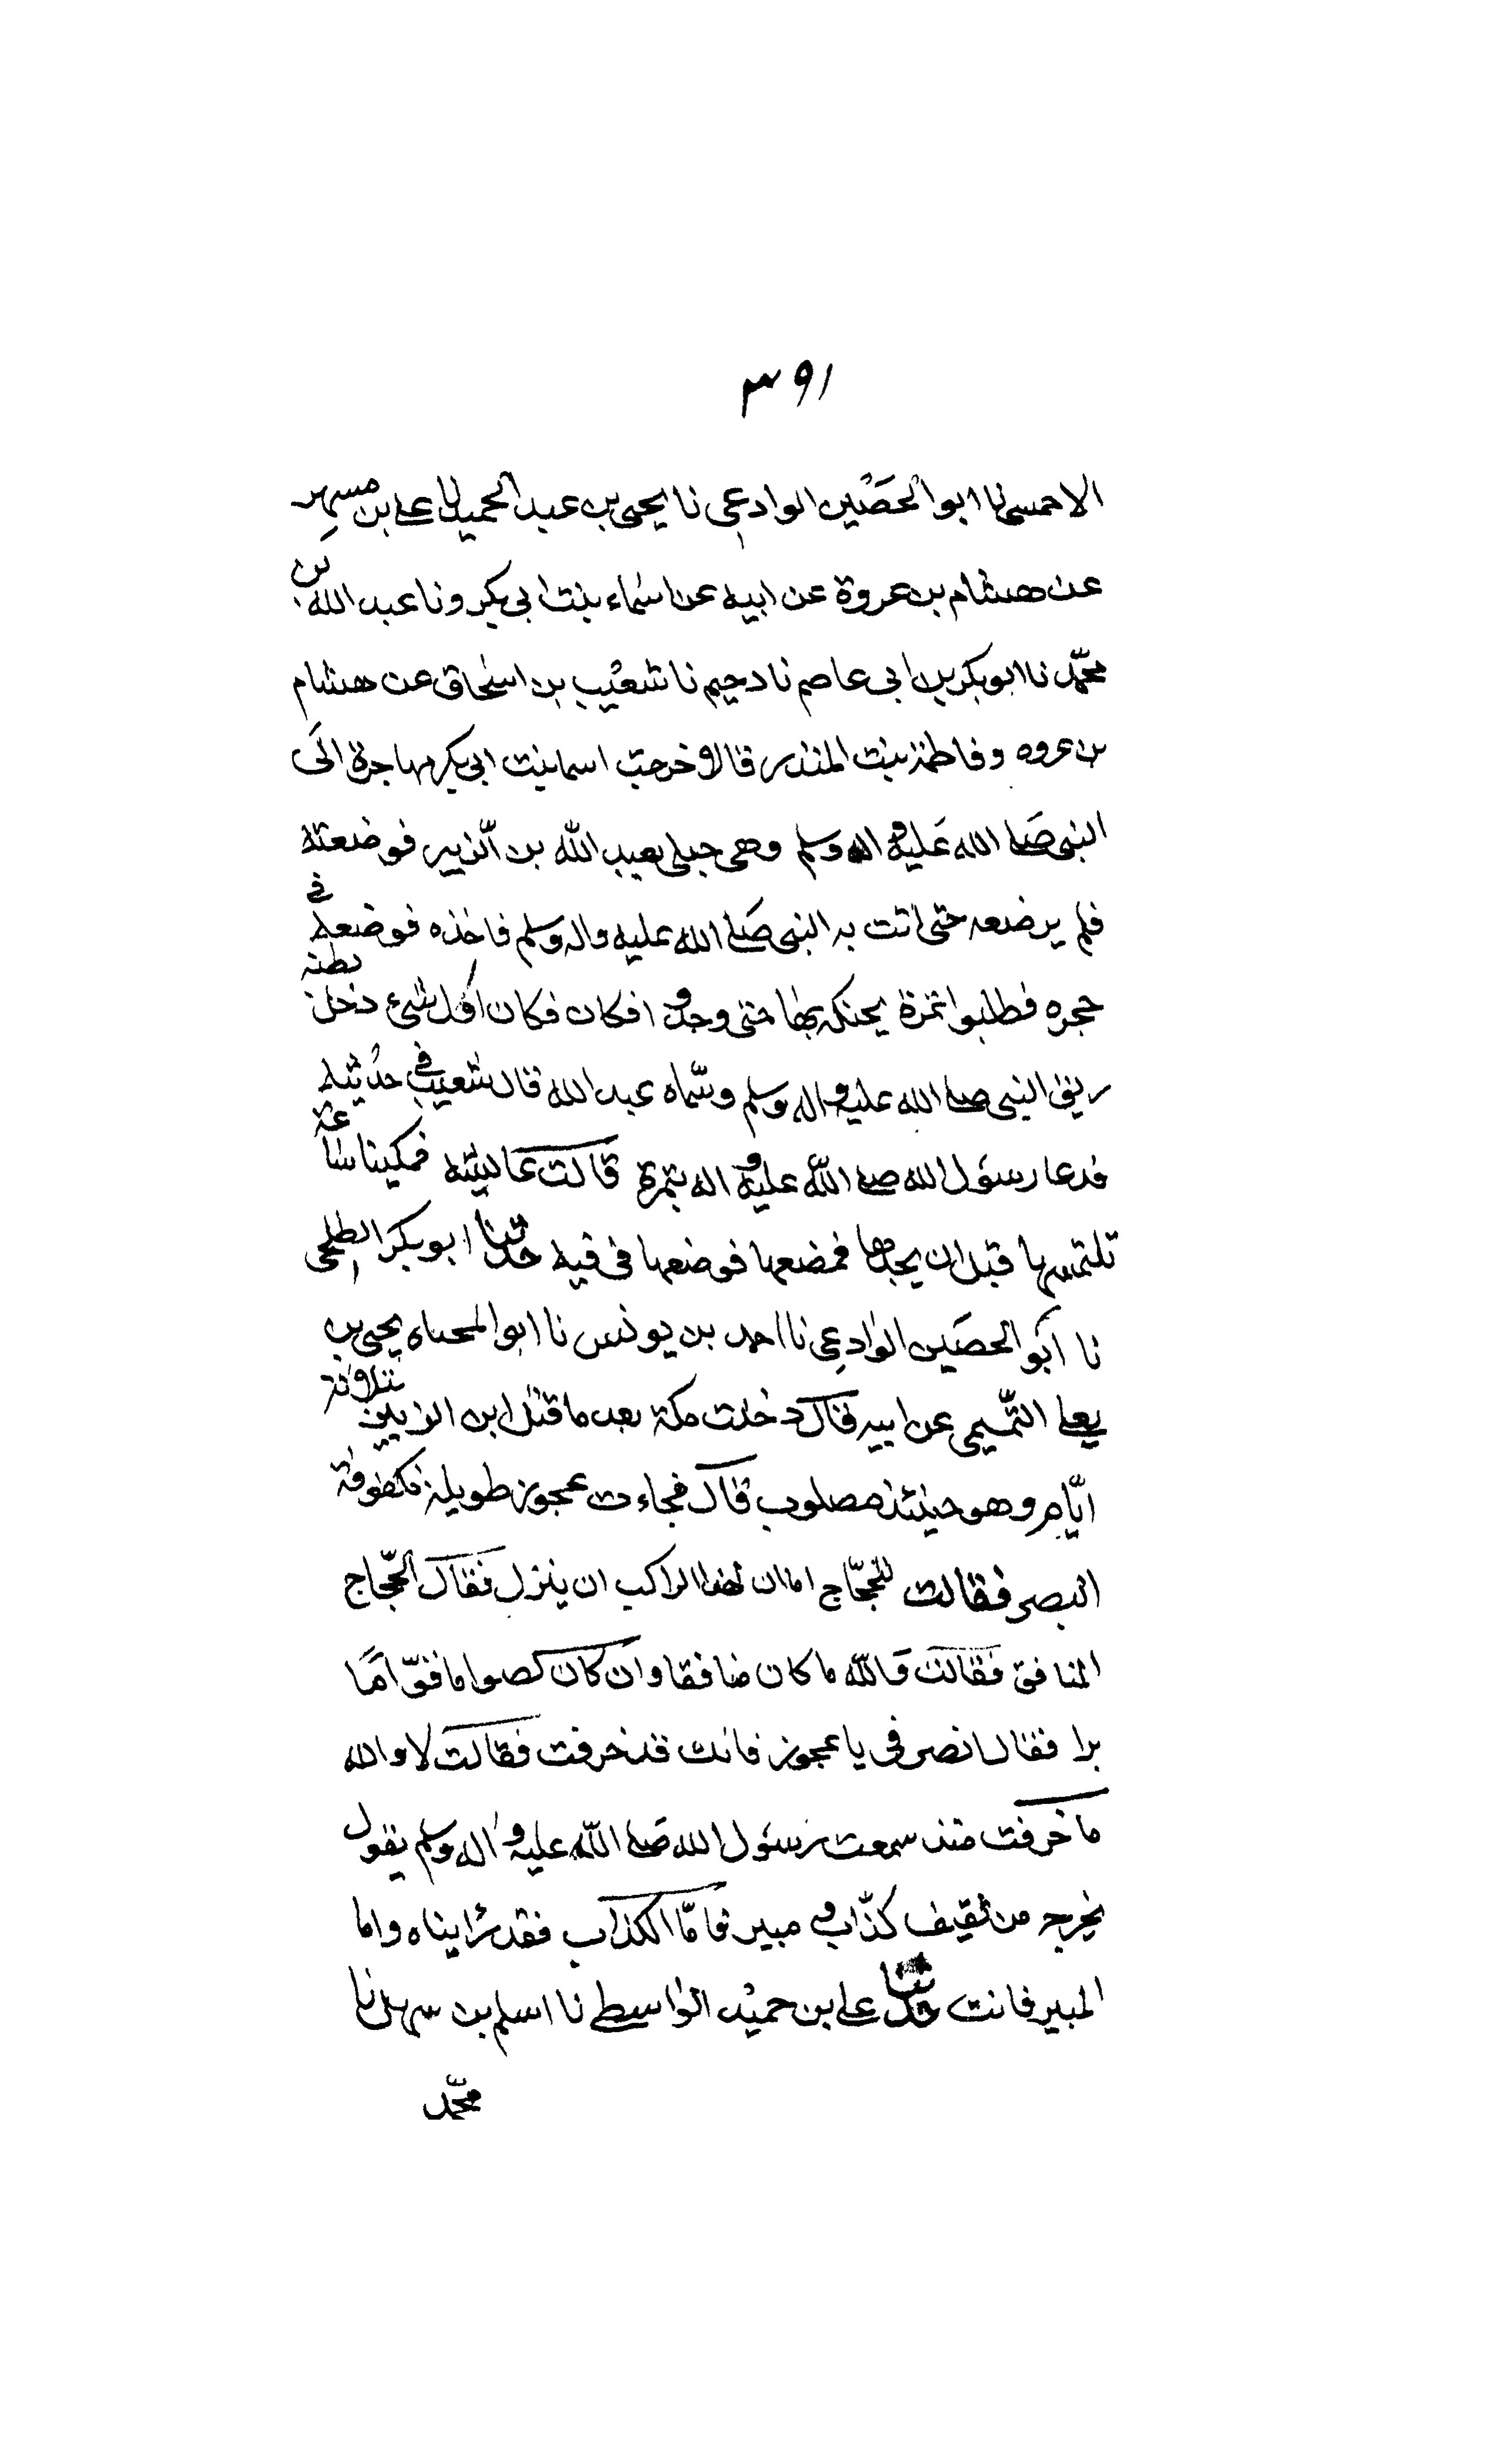 ٣٩١
الاحمسى نا ابو الحصين الوادعى نا يحيى بن عبد الحميد نا على بن مسهر
عن هشام بن عروة عن ابيه عن اسماء بنت ابى بكر ونا عبد الله بن
محمّد نا ابو بكر بن ابى عاصم نا دحيم نا شعيب بن اسحاق عن هشام
بن عروه وفاطمة بنت المنذر قالا خرجت اسما بنت ابى بكر مهاجرة الى
النبى صلى الله عليه واله وسلم وهى حبلى بعبد الله بن الزبير فوضعته
فلم يرضعه حتى اتت به النبى صلى الله عليه واله وسلم فاخذه فوضعه فى
حجره فطلبوا تمرة يحنكه بها حتى وجدوا فكان فكان اول شىء دخل بطنه
ريق النبى صلى الله عليه واله وسلم وسمّاه عبد الله قال شعيب فى حديثه
فدعا رسول الله صلى الله عليه واله بتمرة قالت عايشه فمكثنا ساعة
نلتمسها قبل ان يجدها فمضغها فوضعها فى فيه حدثنا ابو بكر الطلحى
نا ابو الحصين الوادعى نا احمد بن يونس نا ابو المحياه يحيى بن
يعلى التّميمى عن ابيه قال دخلت مكة بعد ما قتل ابن الزبير بثلاثة
ايّام وهو حينئذ مصلوب قال فجاءت عجوز طويلة مكفوفة
البصر فقالت للحجّاج اما ان لهذا الراكب ان ينزل فقال الحجّاج
المنافق فقالت والله ما كان منافقا وان كان لصواما قوّاما
برا فقال انصرفى يا عجوز فانك قد خرفت فقالت لا والله
ما خرفت منذ سمعت رسول الله صلى الله عليه واله وسلم يقول
يخرج من ثقيف كذّاب ومبير فامّا الكذاب فقد رايناه واما
المبير فانت حدثنا على بن حميد الواسطى نا اسلم بن سهل نا
محمّد